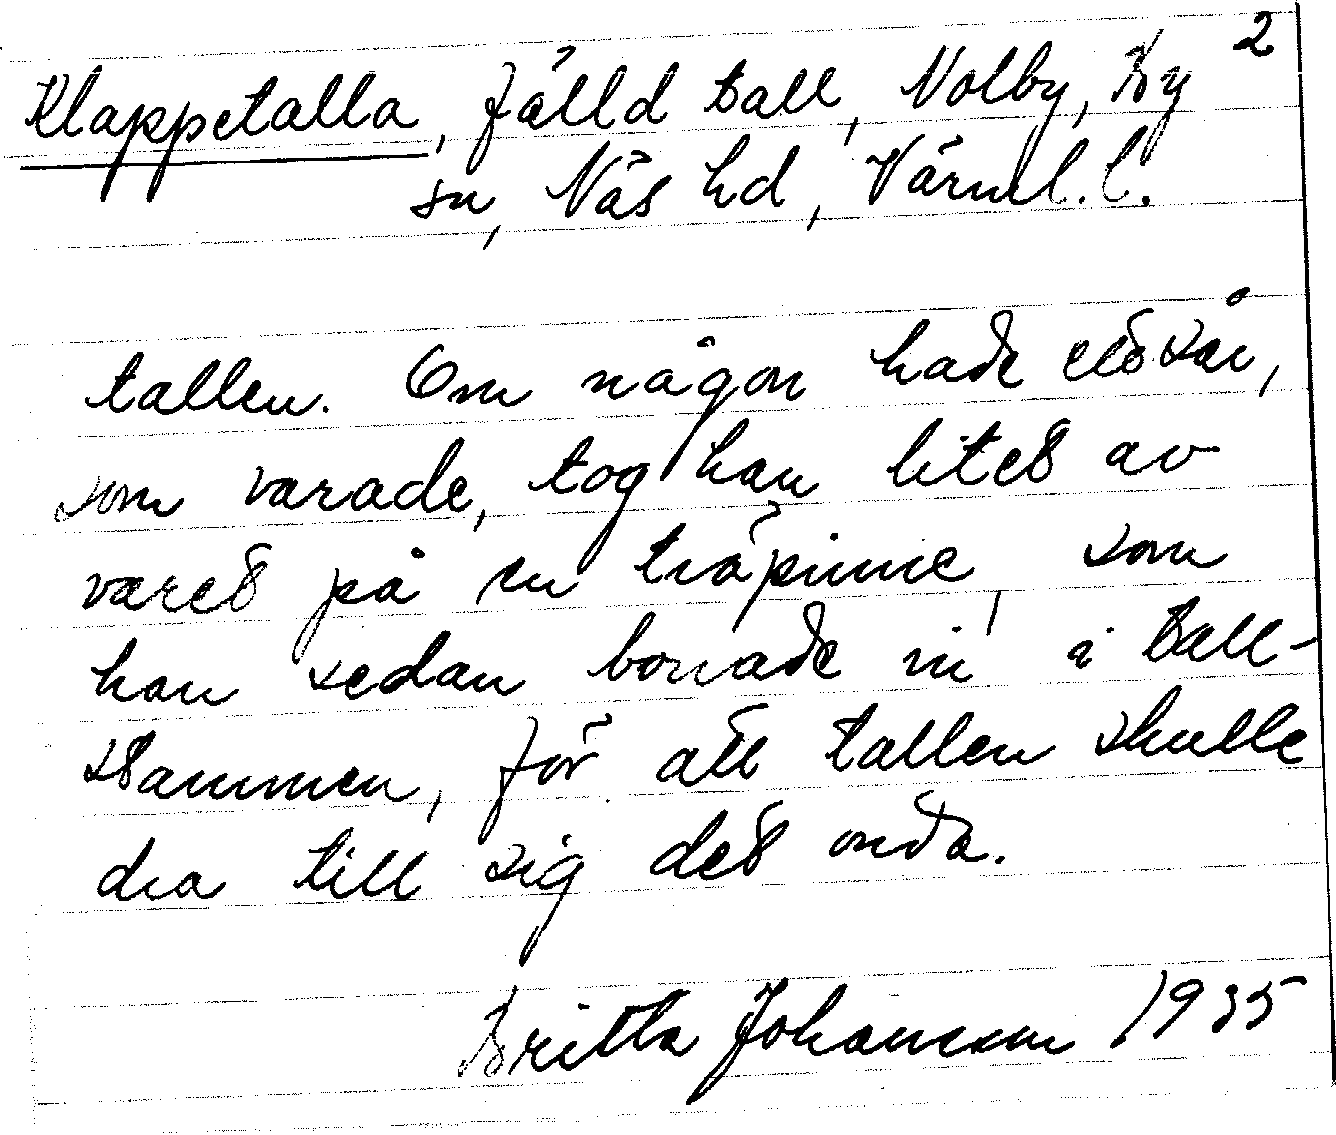 2
Klappetalla, fälld tall, Nolby, By
sn, Näs hd, Värml. l.
tallen. Om någon hade ett sår,
som varade, tog han litet av
varet på en träpinne, som
han sedan borrade in i tall-
stammen, för att tallen skulle
dra till sig det onda.
Britta Johansson 1935